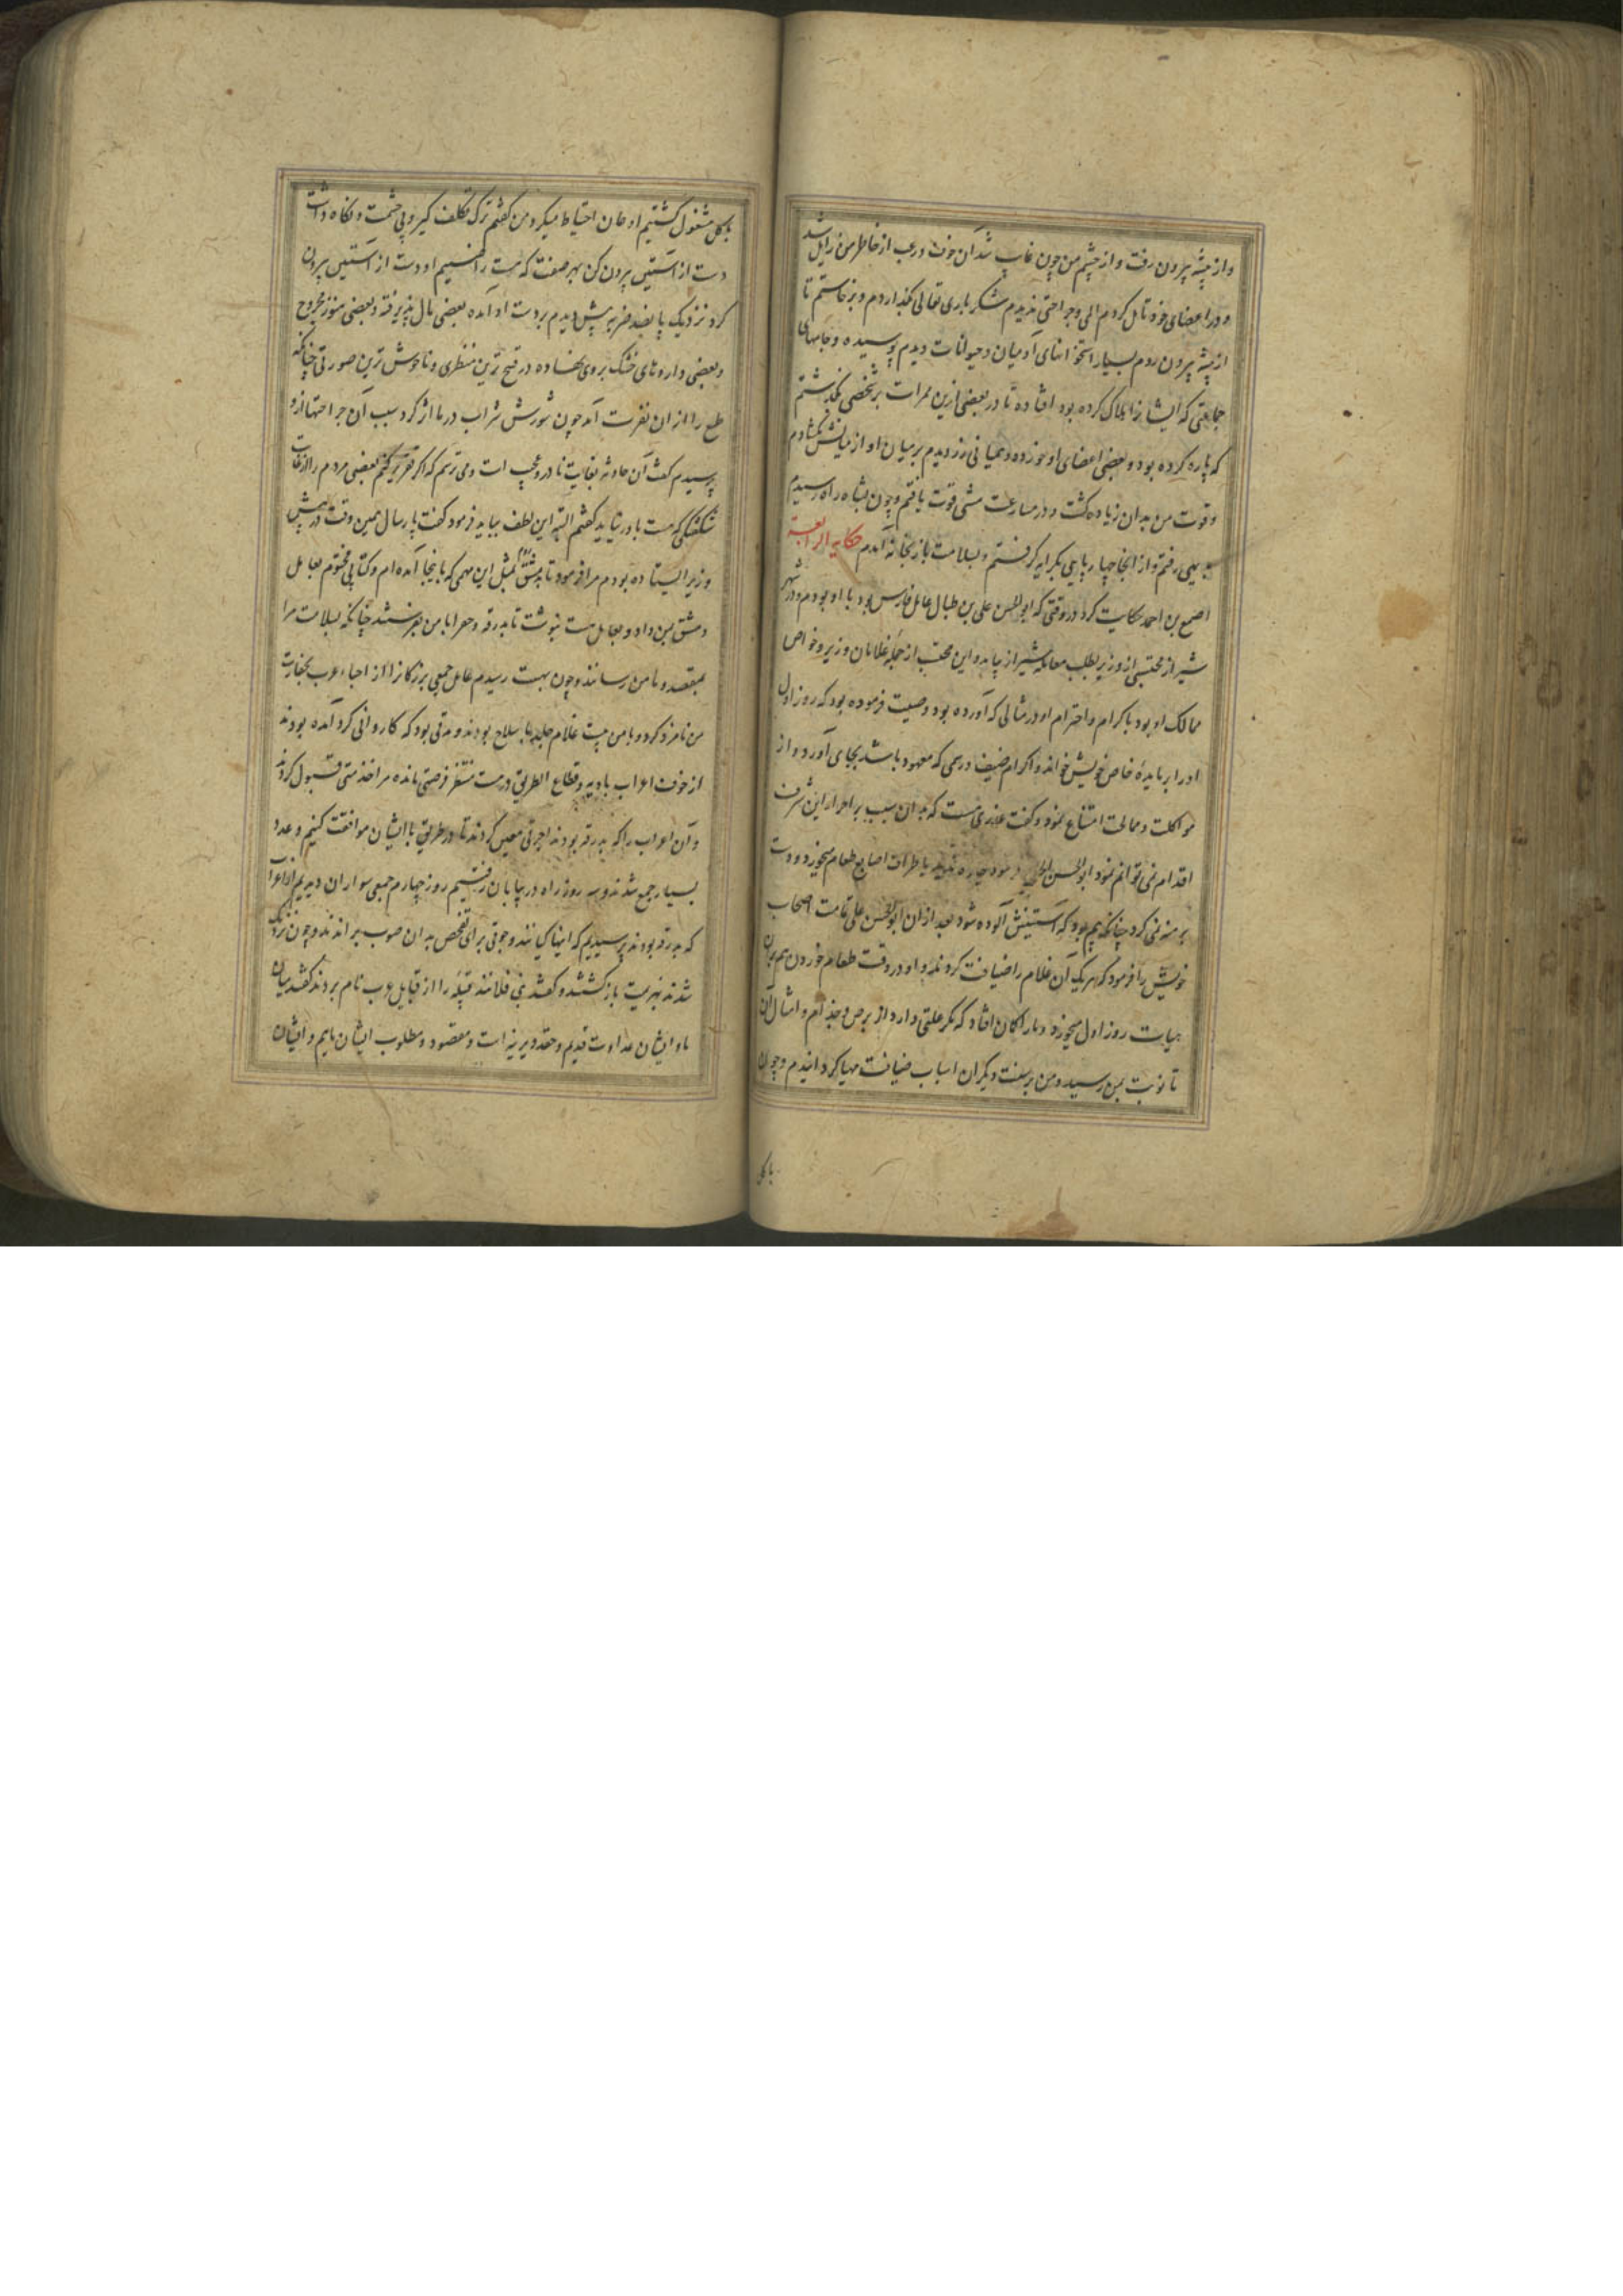 و از بیشه بیرون رفت و از چشم من چون غایب شد آن خوف و رعب از خاطر من زایل شد
و در اعضای خود تامل کردم المی و جراحتی ندیدم شکر باری تعالی بگذاردم و برخاستم تا
از بیشه بیرون روم بسیار استخوانهای آدمیان و حیوانات دیدم پوسیده و جامهای
جماعتی که ایشانرا هلاک کرده بود افتاده تا در بعضی ازین ممرات بر شخصی بگذشتم
که پاره کرده بود و بعضی اعضای او خورده و همیانی زر دیدم بر میان او از میانش بگشادم
و قوت من بدان زیاده گشت و در مسارعت مشی قوت یافتم و چون بشاه راه رسیدم
بدیهی رفتم و از آنجا چهارپایی بکرایه گرفتم و بسلامت باز بخانه آمدم حکایه الرابعة
اصمع بن احمد حکایت کرد در وقتی که ابوالحسن علی بن طبال عامل فارس بود با او بودم و در شهر
شیراز محتسبی از وزیر بطلب معامله شیراز بیامد و این محتسب از جمله غلامان وزیر و خواص
ممالک او بود باکرام و احترام او در مثالی که آورده بود وصیت فرموده بود که روز اول
او را بر مایدهٔ خاص خویش خواند و اکرام ضیف و رسمی که معهود باشد بجای آورد و از
مواکلت و ممالحت امتناع نمود و گفت عذری هست که بدان سبب بر احراز این شرف
اقدام نمی توانم نمود ابوالحسن الحاح فرمود چاره ندید باطراف اصابع طعام میخورد و دست
برهنه نمی کرد چنانکه بیم بود که آستینش آلوده شود بعد از ان ابوالحسن علی تمامت اصحاب
خویش را فرمود که هر یک آن غلام را ضیافت کردند و او در وقت طعام خوردن هم بران
هیات روز اول میخورد و ما را گمان افتاد که مگر علتی دارد از برص و جذام و امثال آن
تا نوبت بمن رسید و من بر سنت دیگران اسباب ضیافت مهیا گردانیدم و چون
باکل
باکل مشغول گشتیم او همان احتیاط میکرد من گفتم ترک تکلف گیر و بی حشمت و نگاه داشت
دست از آستین بیرون کن بهر صفت که هست راضییم او دست از آستین بیرون
کرد نزدیک پانصد ضربه بیش دیدم بر دست او آمده بعضی مال پذیرفته و بعضی هنوز مجروح
و بعضی داروهای خشک بر وی نهاده در قبیح ترین منظری و ناخوش ترین صورتی چنانکه
طبع را از ان نفرت آمد چون شورش شراب در ما اثر کرد سبب آن جراحتها ازو
پرسیدم گفت آن حادثه بغایت نادر و عجب است و می ترسم که اگر تقریر کنم بعضی مردم را از غایت
شگفتگی که هست باور نیاید گفتم البته این لطف بباید فرمود گفت پارسال همین وقت در پیش
وزیر ایستاده بودم مرا فرمود تا بدمشق بمثل این مهمی که باینجا آمده ام و کتابی مختوم بعامل
دمشق بمن داد و بعامل هیت نبشت تا بدرقه و خفرا با من بفرستند چنانکه بسلامت مرا
بمقصد و مامن رسانند و چون بهیت رسیدم عامل جمعی بزرگانرا از احیاء عرب بخفارت
من نامزد کرد و با من بیست غلام جلد با سلاح بودند و مدتی بود که کاروانی گرد آمده بودند
از خوف اعراب بادیه و قطاع الطریق در هیت منتظر فرصتی مانده مرا خدمتی قبول کردند
و آن اعراب را که بدرقه بودند اجرتی معین کردند تا در طریق با ایشان موافقت کنیم و عدد
بسیار جمع شدند و سه روز راه در بیابان رفتیم روز چهارم جمعی سواران دیدیم از اعراب
که بدرقه بودند پرسیدیم که اینها کیانند و جوقی برای تفحص بدان صوب براندند و چون نزدیک
شدند بهزیمت باز گشتند و گفتند بنی فلانند قبیله را از قبایل عرب نام بردند گفتند میان
ما و ایشان عداوت قدیم و حقد دیرینه است و مقصود و مطلوب ایشان ماییم و ایشان